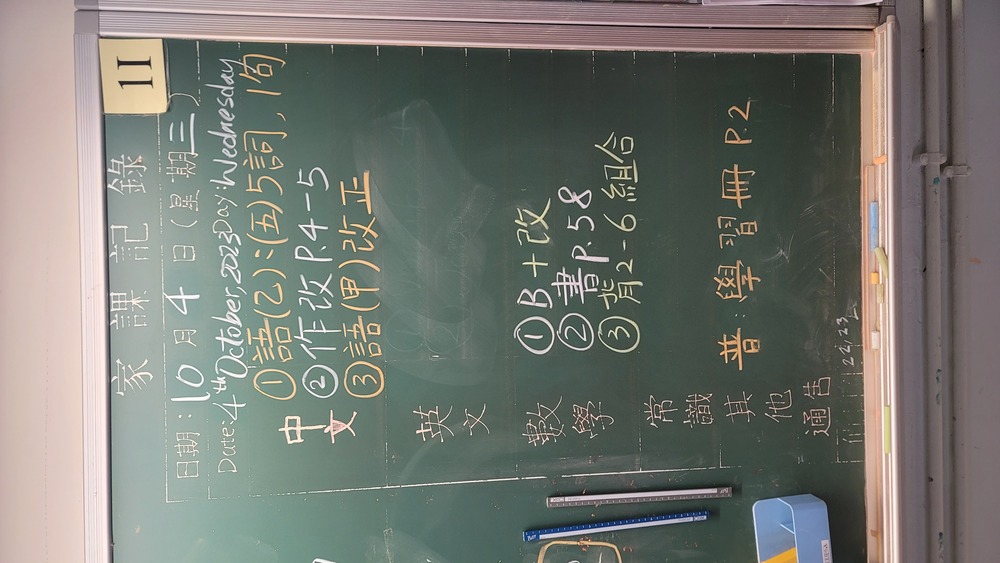 11
家課記錄
日期:10月4日(星期三)
Date:4th October,2023 Day:Wednesday
中文
①語(乙):(五)5詞,1句
②作改P.4-5
③語(甲)改正
英文
數學
①B+改
②書P.58
③背2-6組合
常識
其他
普:學習冊 P.2
通告
22,23